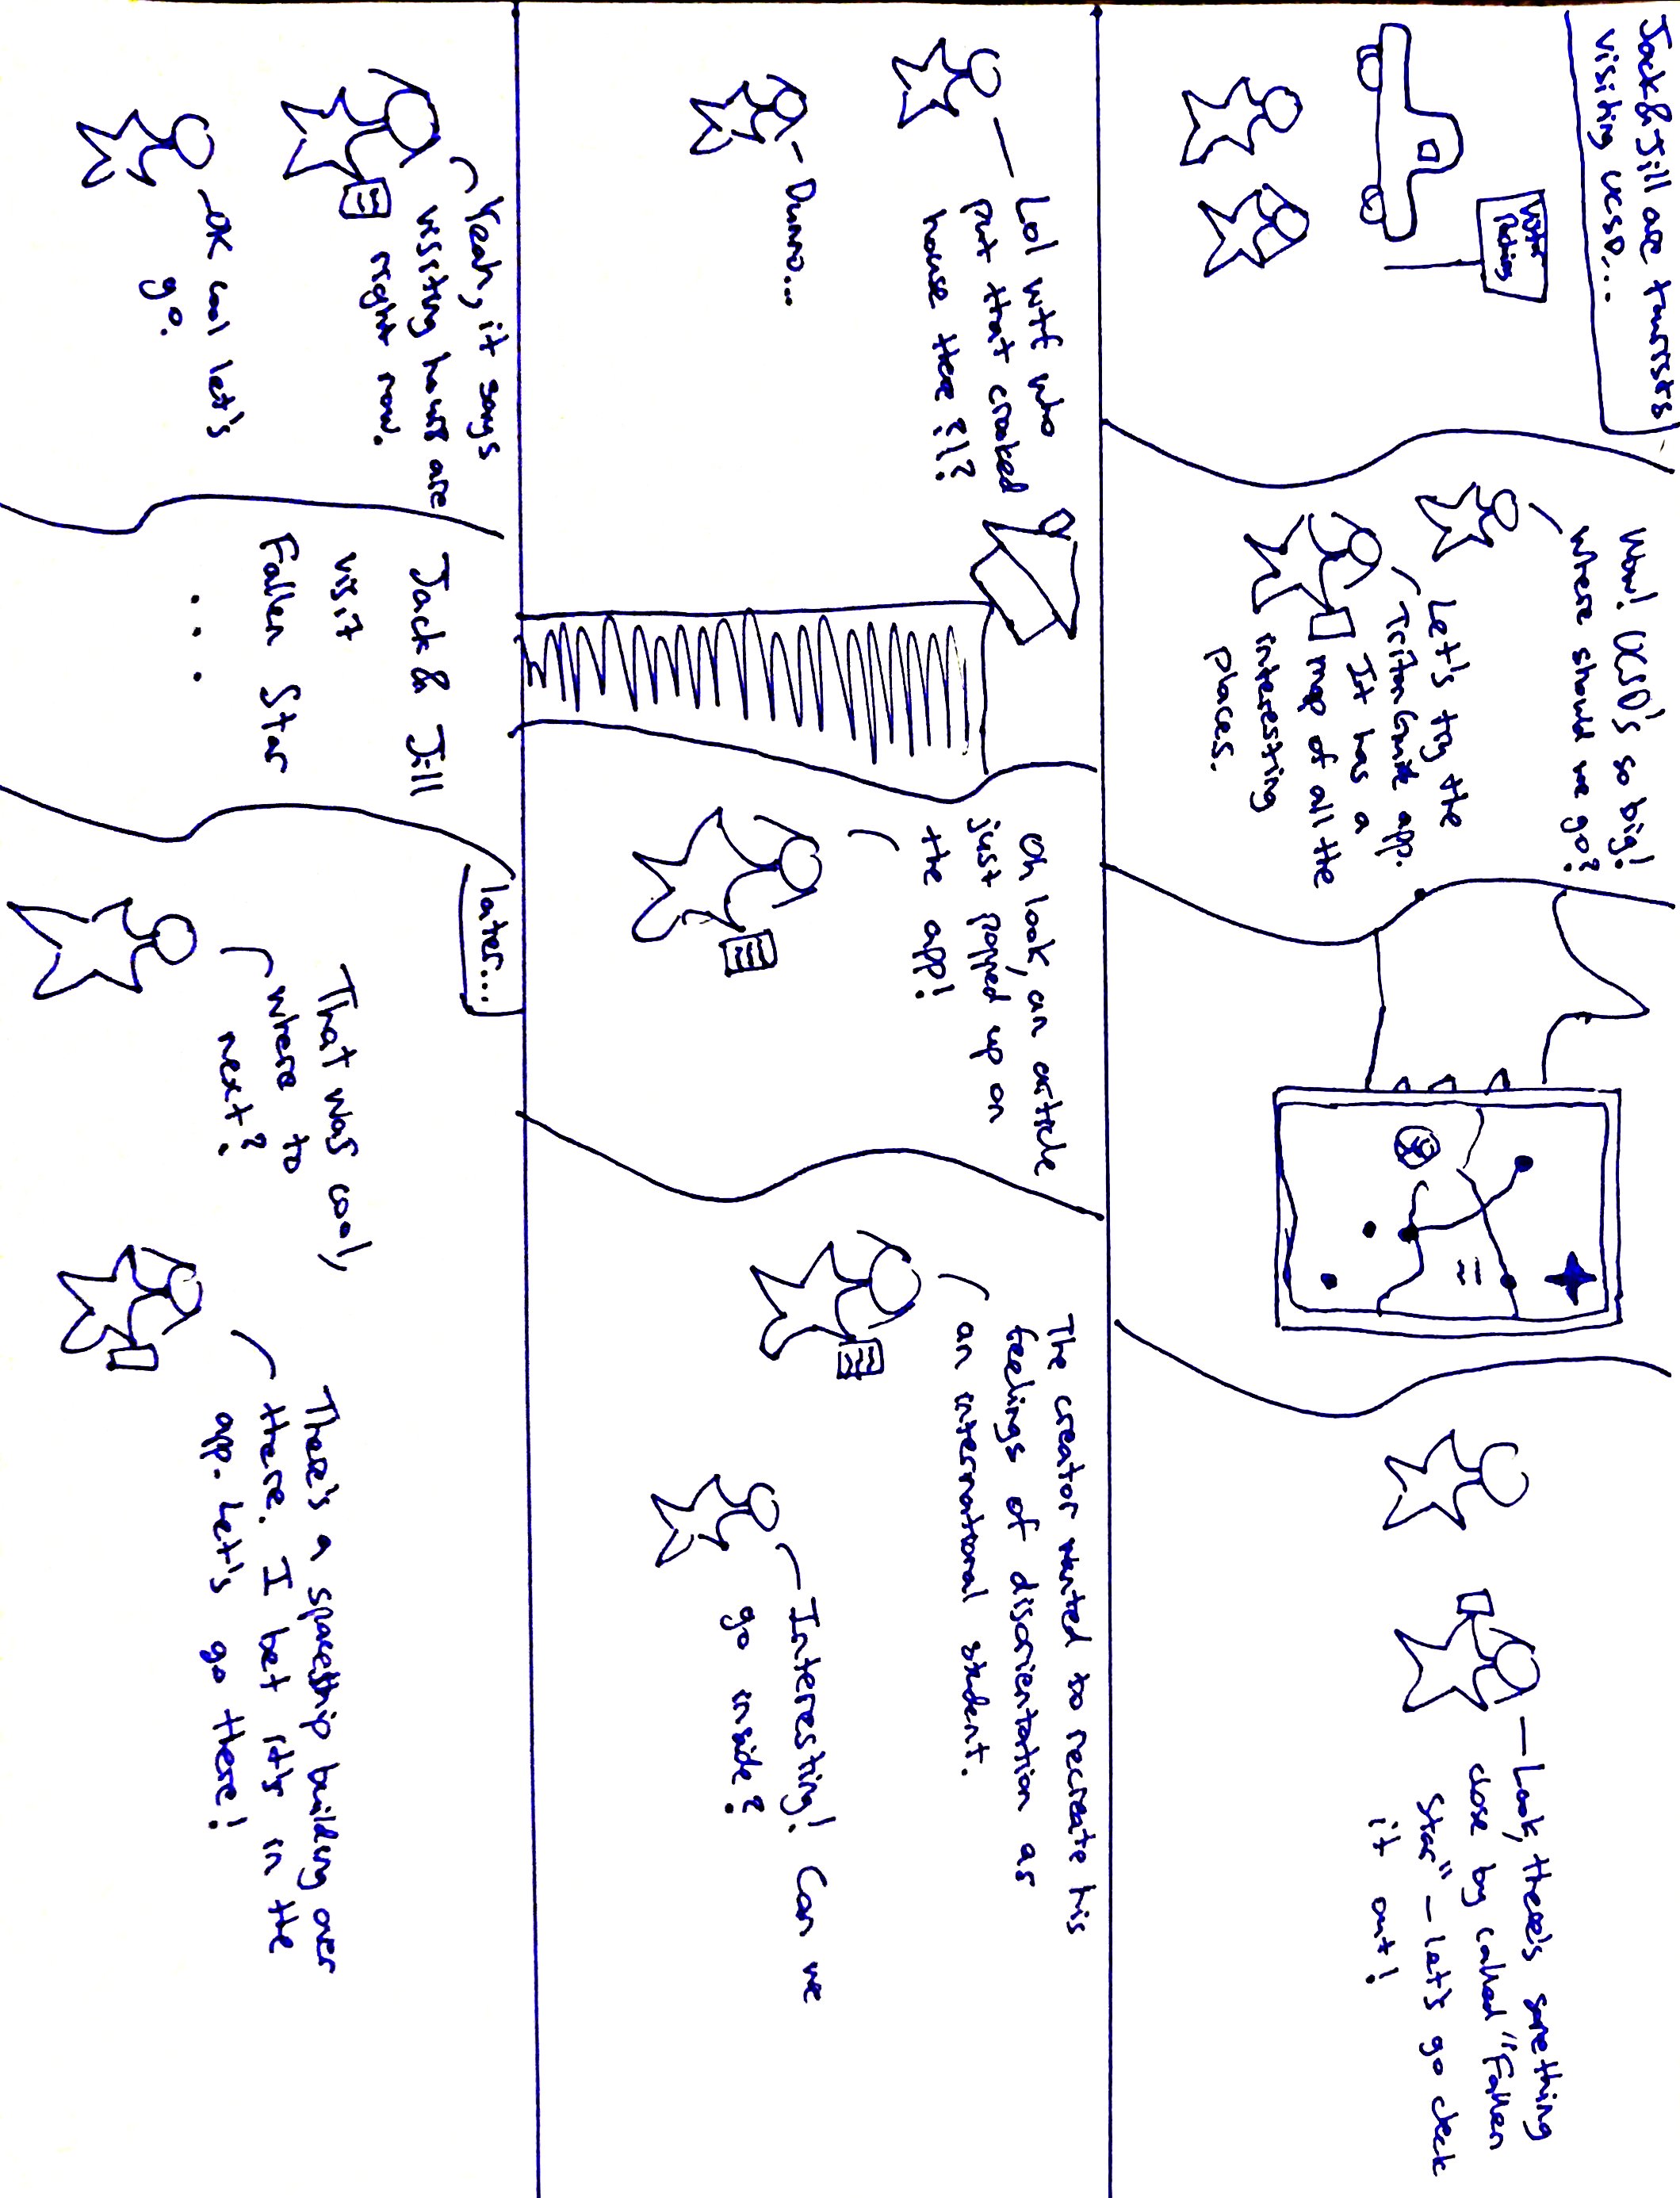 Jack & Jill are tourists
visiting UCSD...
Visitor
Parking
Wow! UCSD's so big!
Where should we go?
Let's try the
Triton Guide app.
It has a
map of all the
interesting
places.
Look, there's something
close by called "Fallen
Star" - let's go check
it out!
Lol wtf who
put that crooked
house there?!?
Dunno...
Oh look, an article
just popped up on
the app!
The creator wanted to recreate his
feelings of disorientation as
an international student.
Interesting! Can we
go inside?
Yeah, it says
visiting hours are
right now.
OK cool let's
go.
Jack & Jill
visit
Fallen Star
...
later...
That was cool,
where to
next?
There's a spaceship building over
there. I bet it's in the
app. Let's go there!